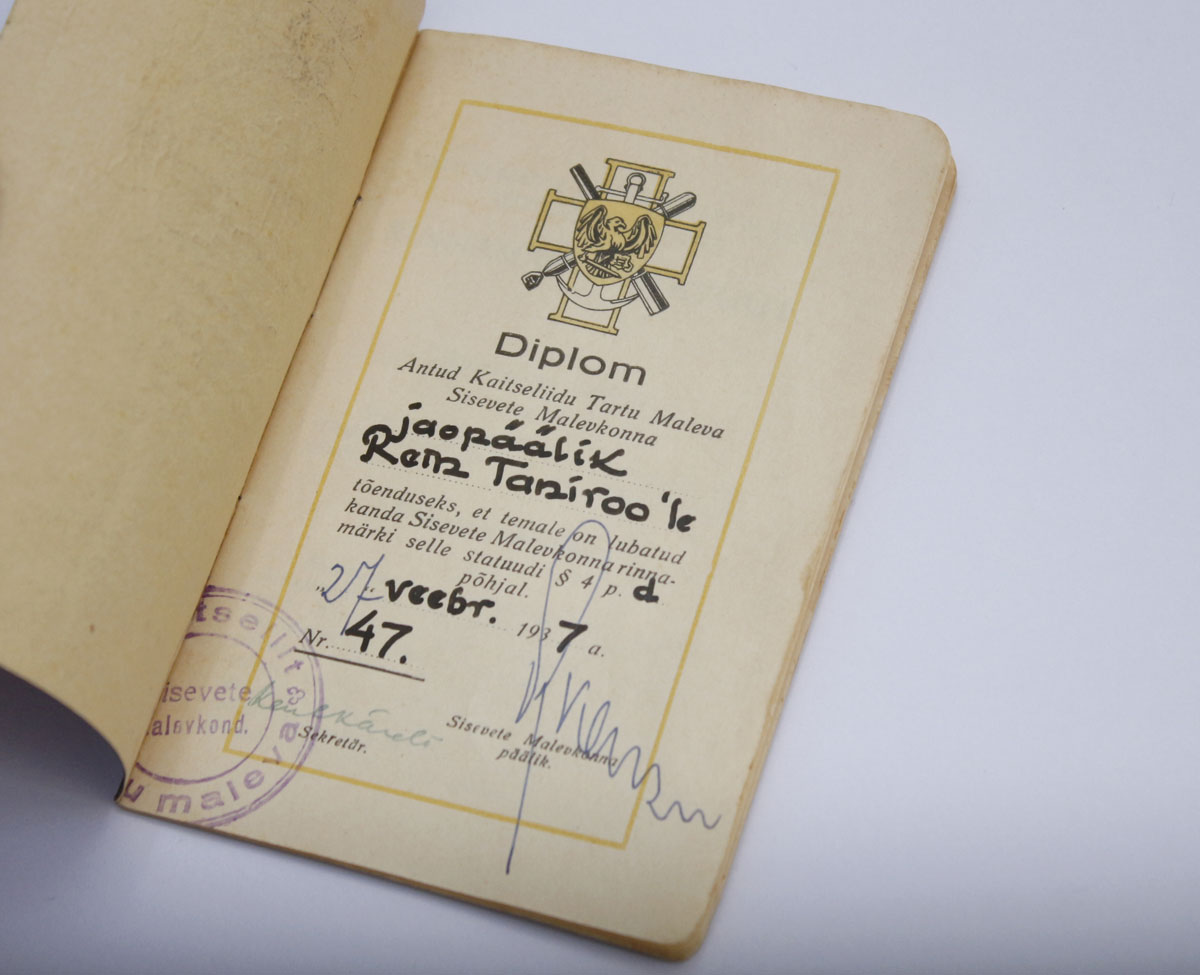 Diplom
Antud Kaitseliidu Tartu Maleva
Sisevete Malevkonna
jaopäälik
Rein Taniroo'le
tõenduseks, et temale on lubatud
kanda Sisevete Malevkonna rinna-
märki selle statuudi § 4 p. d
põhjal.
„27" veebr. 1937 a.
Nr. 47.
tseliit
isevete
alevkond.
u maleva
Sekretär.
Sisevete Malevkonna
päälik.